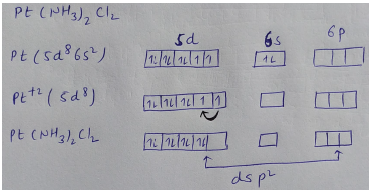 Pt(NH₃)₂Cl₂
5d 6s 6p
Pt(5d⁸6s²) 1L 1L 1L 1 1 1L
Pt⁺²(5d⁸) 1L 1L 1L 1 1
Pt(NH₃)₂Cl₂ 1L 1L 1L 1L
dsp²